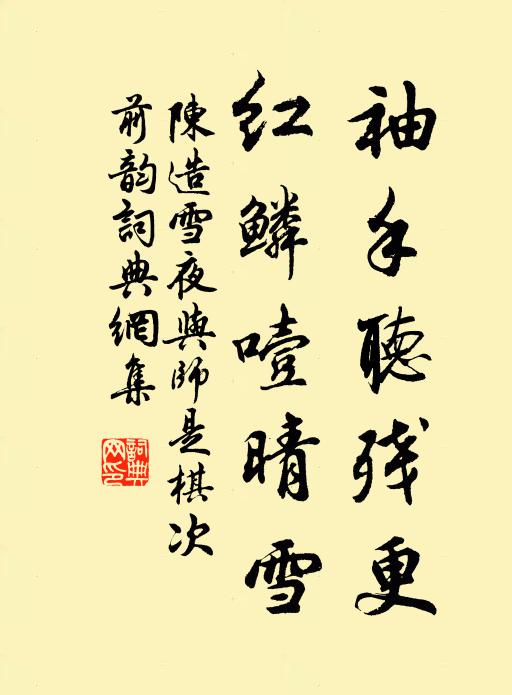 袖手聽残更
红鳞噎晴雪
陳造雪夜與師是棋次
前韵詞典網集
詞典
网印